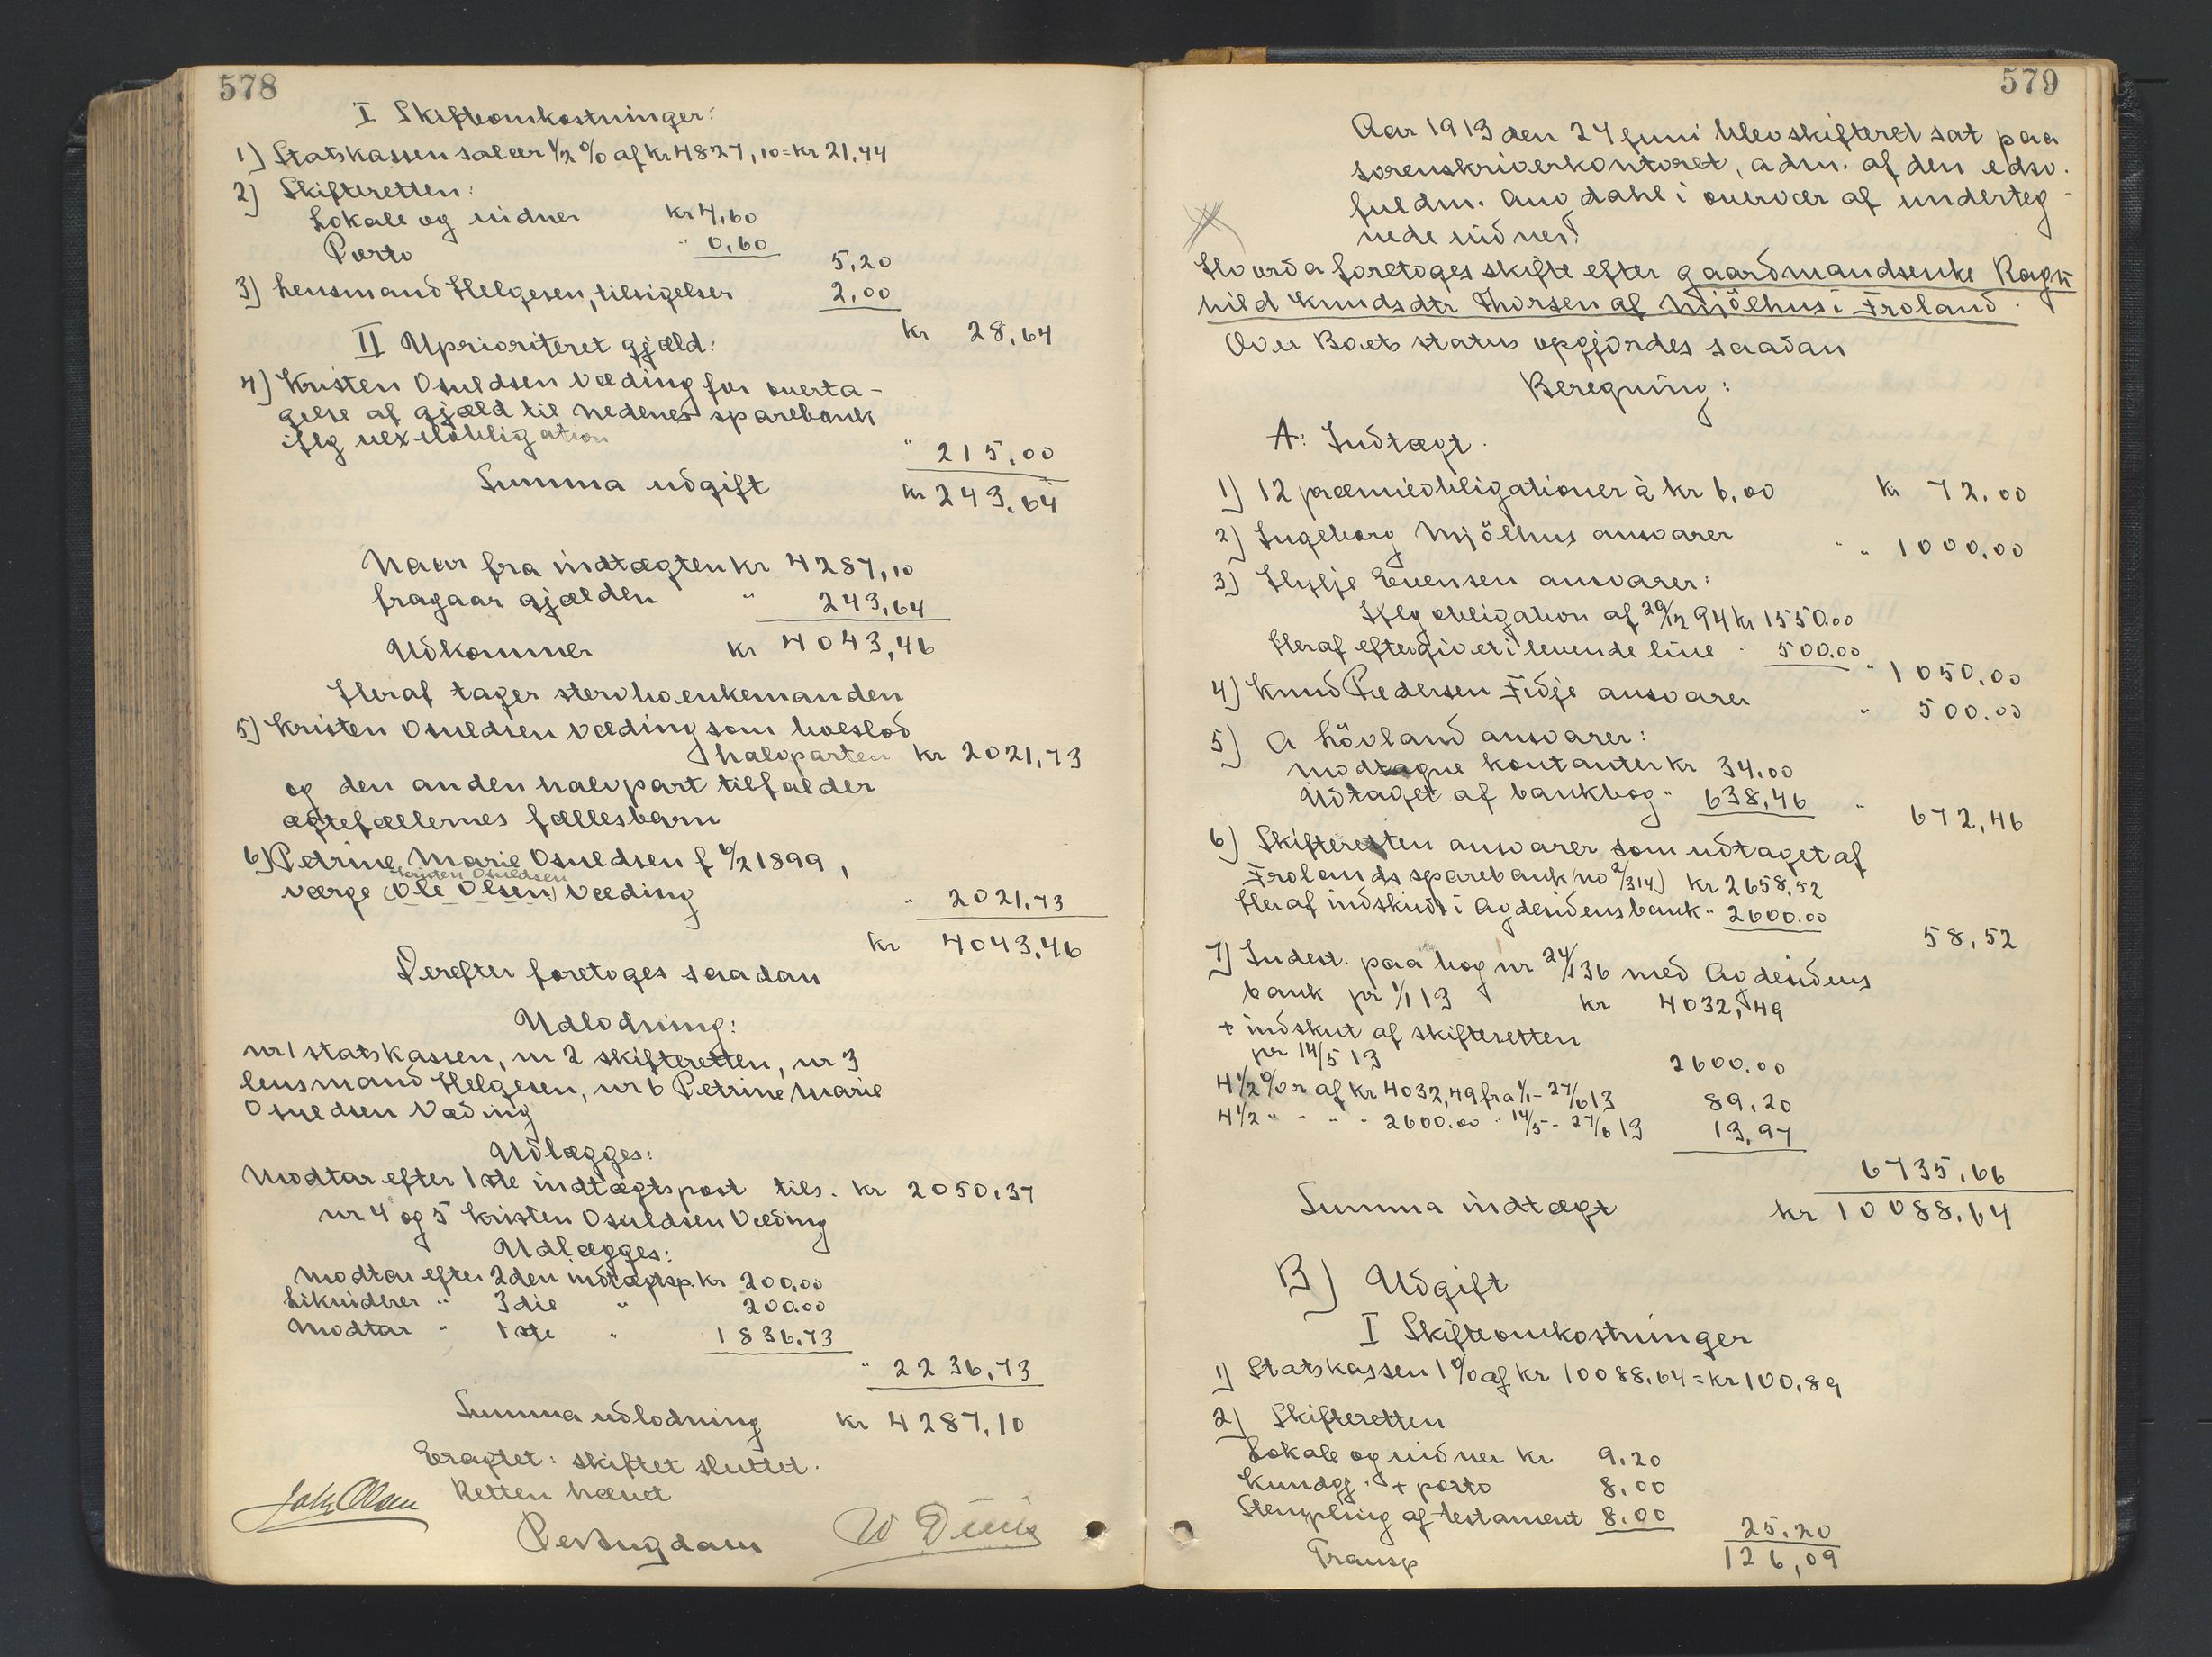 578
I Skifteomkostninger:
1) Statskassen salær 1/2 % af kr 4827,10 = kr 21,44
2) Skifteretten:
Lokale og vidner kr 4,60
Porto " 0,60
5,20
3) Lensmand Helgesen, tilsigelser 2,00
kr 28,64
II Uprioriteret gjæld:
4) Kristen Osuldsen Væding for overta-
gelse af gjæld til Nedenes sparebank
iflg vexelobligation
" 215,00
Summa udgift kr 243,64
Naar fra indtægten kr 4287,10
fragaar gjælden " 243,64
Udkommer kr 4043,46
Heraf tager stervboenkemanden
5) Kristen Osuldsen Væding som boeslod
halvparten kr 2021,73
og den anden halvpart tilfalder
ægtefællernes fællesbarn
6) Petrine Marie Osuldsen f 6/2 1899,
Kristen Osuldsen
værge (Ole Olsen) Væding " 2021,73
kr 4043,46
Derefter foretoges saadan
Udlodning:
nr 1 statskassen, nr 2 skifteretten, nr 3
lensmand Helgesen, nr 6 Petrine Marie
Osuldsen Væding
Udlægges:
Modtar efter 1ste indtægtspost tils. kr 2050,37
nr 4 og 5 Kristen Osuldsen Væding
Udlægges:
Modtar efter 2den indtægtsp. kr 200,00
Likviderer " 3die " 200,00
Modtar " 1ste " 1836,73
" 2236,73
Summa udlodning kr 4287,10
Eragtet: skiftet sluttet.
Retten hævet
Per Augdam
579
Aar 1913 den 24 juni blev skifteret sat paa
sorenskriverkontoret, adm. af den edsv.
fuldm. Auvdahl i overvær af underteg-
nede vidner.
Hvorda foretoges skifte efter gaardmandsenke Ragn-
hild Knudsdtr Thorsen af Mjölhus i Froland.
Over Boets status opgjordes saadan
Beregning:
A: Indtægt.
1) 12 præmieobligationer à kr 6,00 kr 72,00
2) Ingeborg Mjölhus ansvarer " " 1000,00
3) Hylje Evensen ansvarer:
Iflg obligation af 29/12 94 kr 1550,00
Heraf eftergivet i levende live " 500,00
" 1050,00
4) Knud Pedersen Fidje ansvarer " 500,00
5) A Hövland ansvarer:
modtagne kontanter kr 34,00
Udtaget af bankbog " 638,46 " 672,46
6) Skifteretten ansvarer som udtaget af
Frolands sparebank (no 2/314) kr 2658,52
Heraf indskudt i Agdesidens bank " 2600,00
58,52
7) Indest. paa bog nr 24/136 med Agdesidens
bank pr 1/1 13 kr 4032,49
+ indskut af skifteretten
pr 14/5 13 2600,00
4 1/2 % r af kr 4032,49 fra 1/1 - 27/6 13 89,20
4 1/2 " " " " 2600,00 " 14/5 - 27/6 13 13,97
6735,66
Summa indtægt kr 10088,64
B) Udgift
I Skifteomkostninger
1) Statskassen 1 % af kr 10088,64 = kr 100,89
2) Skifteretten
Lokale og vidner kr 9,20
Kundgj. + porto 8,00
Stempling af testament 8,00 25,20
Transp 126,09